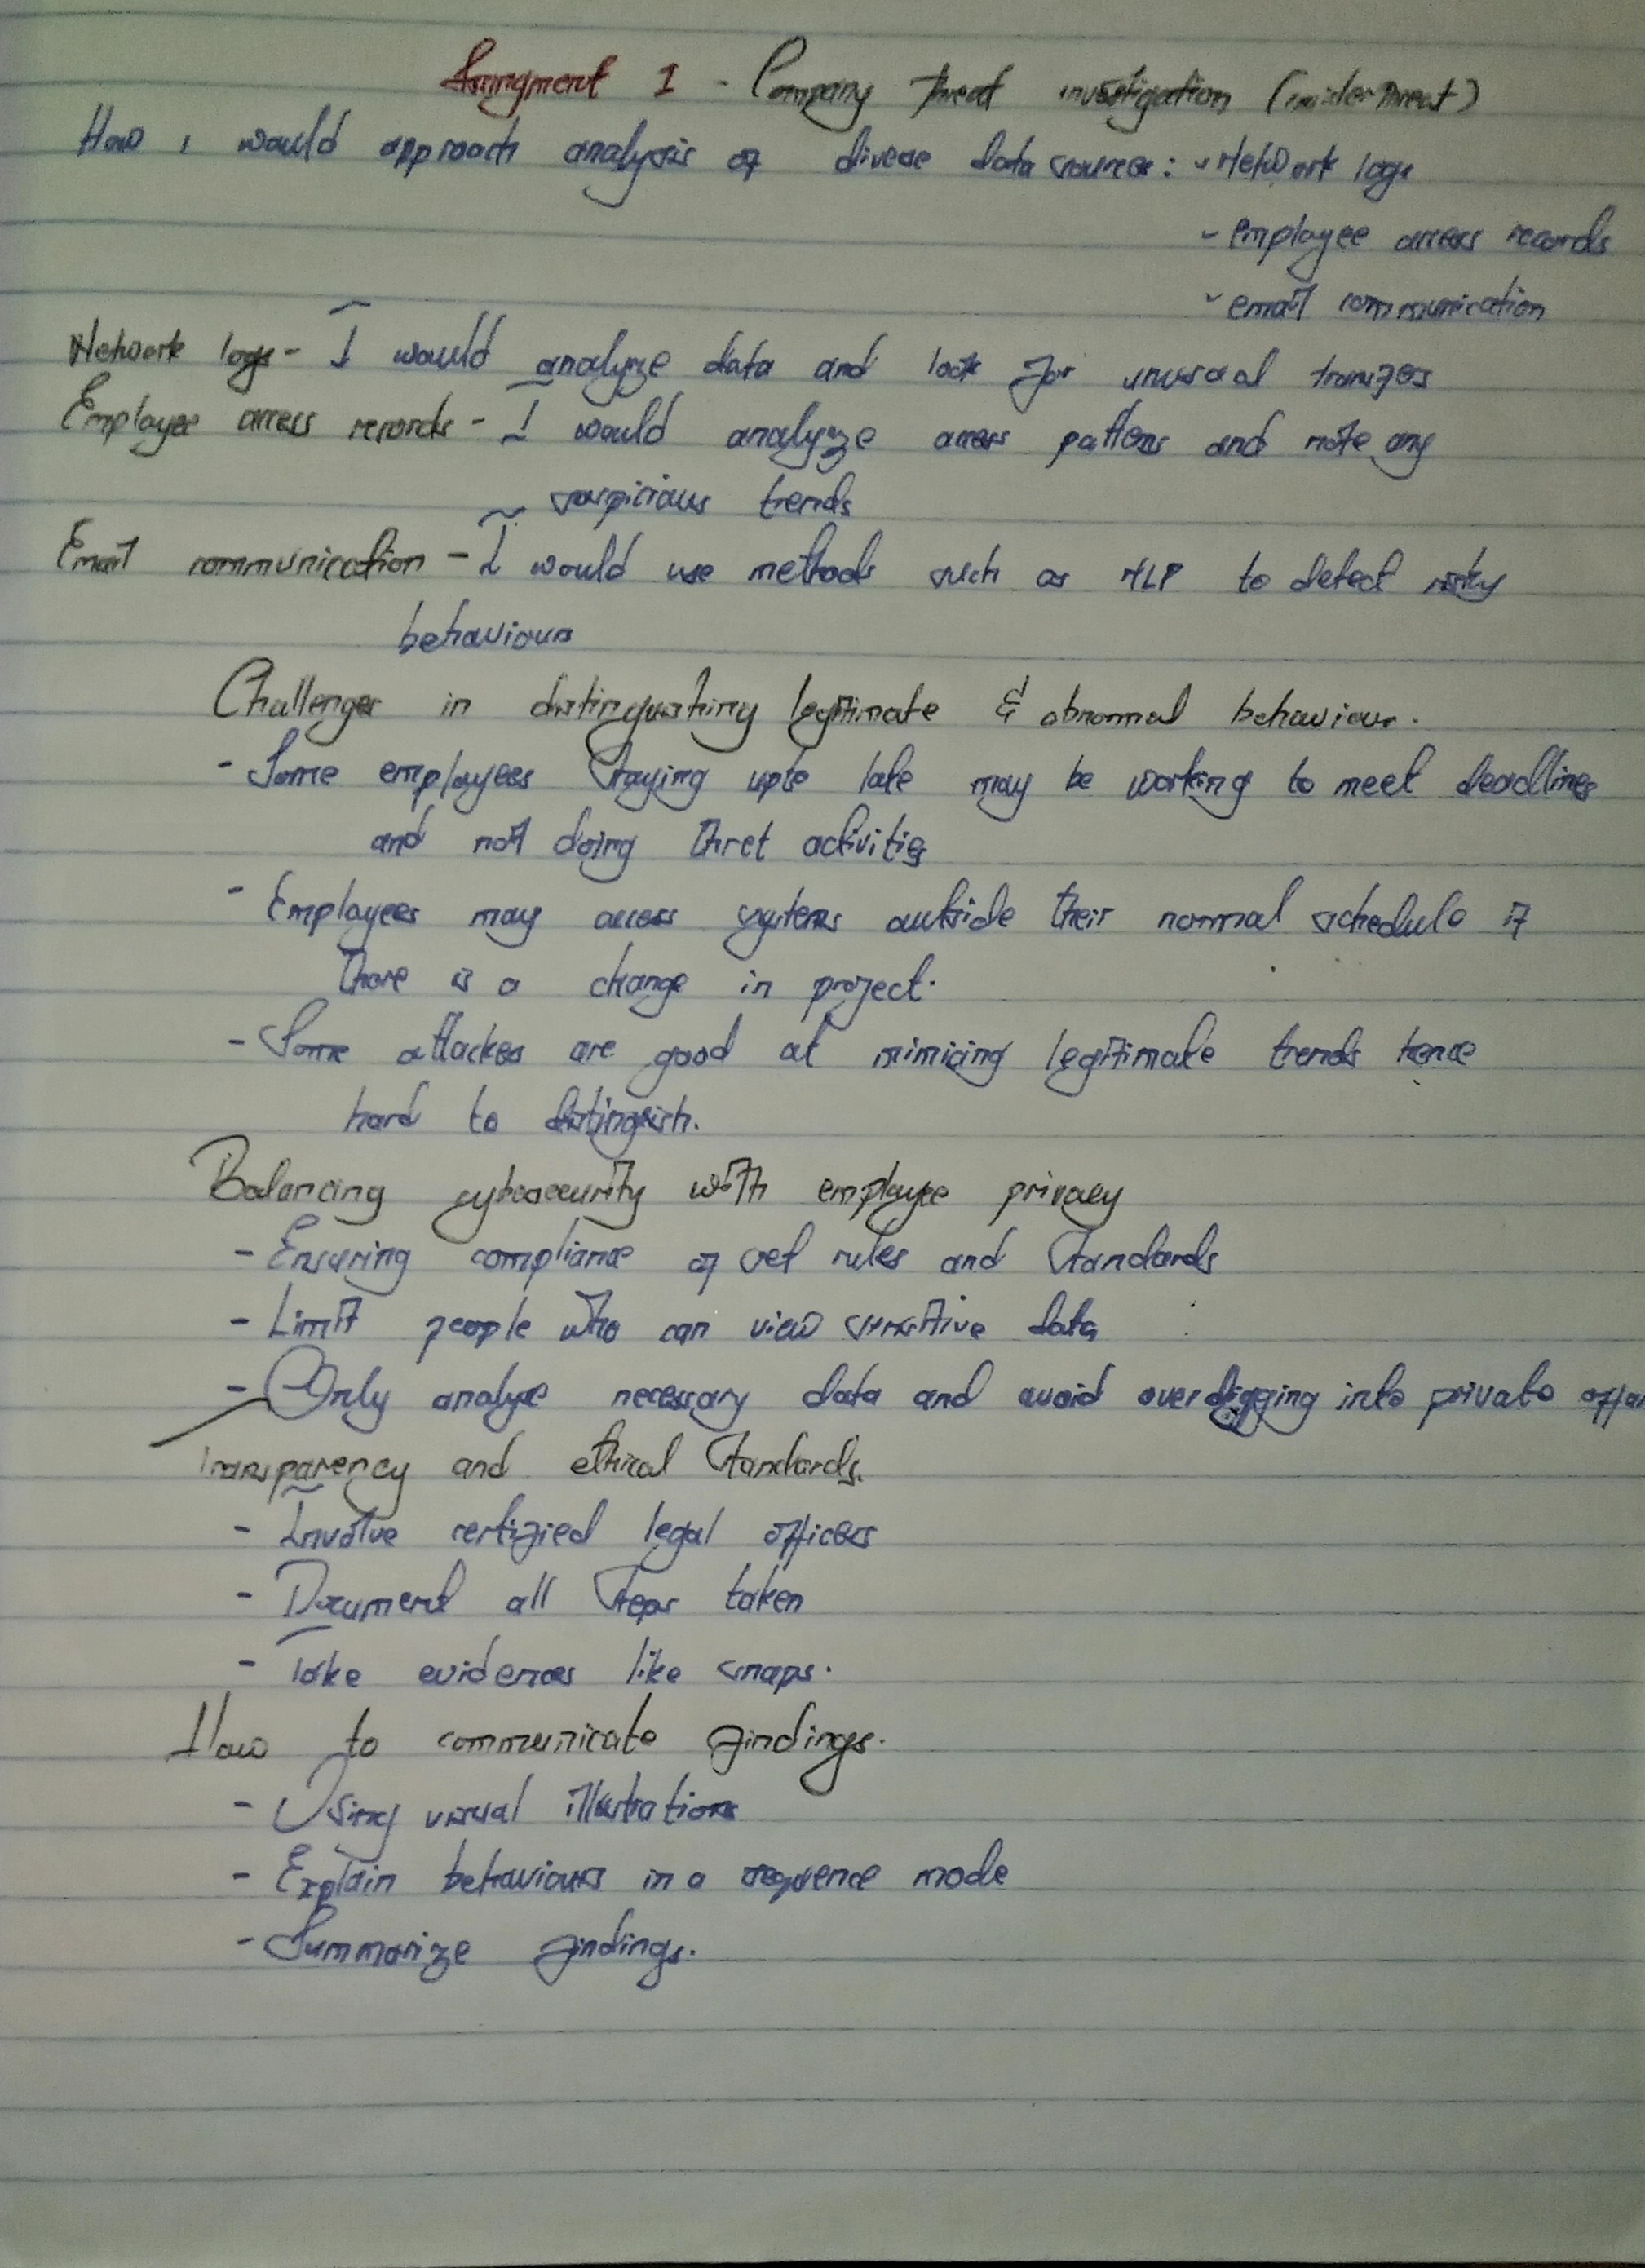 Assingment 1 - Company threat investigation (insider threat)
How i would approach analysis of diverse data sources: - Network logs
- employee access records
- email communication
Network logs - I would analyze data and look for unusual transfers
Employee access records - I would analyze access patterns and note any
suspicious trends
Email communication - I would use methods such as NLP to detect risky
behaviours
Challenges in distinguishing legitimate & abnormal behaviour.
- Some employees staying upto late may be working to meet deadlines
and not doing thret activities
- Employees may access systems outside their normal schedule if
there is a change in project.
- Some attackers are good at mimicing legitimate trends hence
hard to distinguish.
Balancing cybersecurity with employee privacy
- Ensuring compliance of set rules and standards
- Limit people who can view sensitive data
- Only analyze necessary data and avoid overdigging into private
Transparency and ethical standards.
- Involve certified legal officers
- Document all steps taken
- Take evidences like snaps.
How to communicate findings.
- Using visual illustrations
- Explain behaviours in a sequence mode
- Summarize findings.